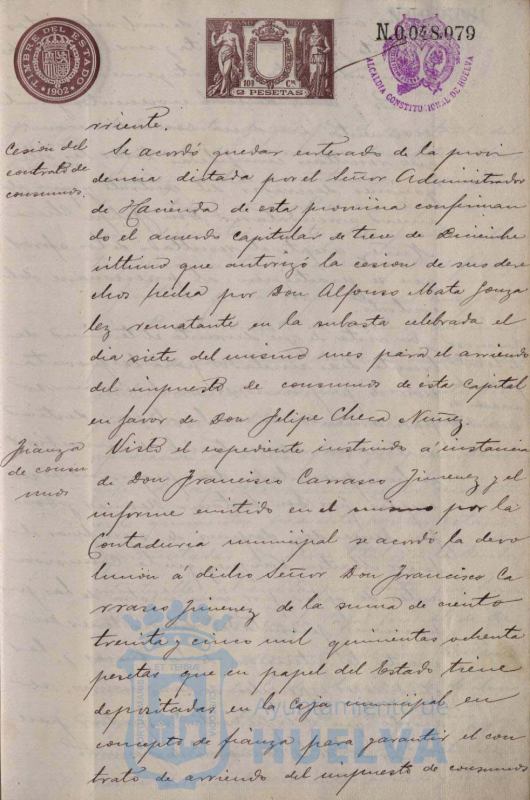 TIMBRE DEL ESTADO
1902
100 Cs.
2 PESETAS
N.0,048,079
ALCALDIA CONSTITUCIONAL DE HUELVA
rriente.
Cesion del
contrato de
consumos.
Se acordó quedar enterado de la provi
dencia dictada por el Señor Administrador
de Hacienda de esta provincia confirman
do el acuerdo capitular de trece de Diciembre
último que autorizó la cesion de sus dere
chos hecha por Don Alfonso Mata Gonza
lez rematante en la subasta celebrada el
dia siete del mismo mes para el arriendo
del impuesto de consumos de esta Capital
en favor de Don Felipe Checa Nuñez.
Fianza
de consu
mos
Visto el expediente instruido á instancia
de Don Francisco Carrasco Jimenez y el
informe emitido en el mismo por la
Contaduria municipal se acordó la devo
lucion á dicho Señor Don Francisco Ca
rrasco Jimenez de la suma de ciento
treinta y cinco mil quinientas ochenta
pesetas que en papel del Estado tiene
depositadas en la Caja municipal en
concepto de fianza para garantir el con
trato de arriendo del impuesto de consumos
Ayuntamiento de
HUELVA